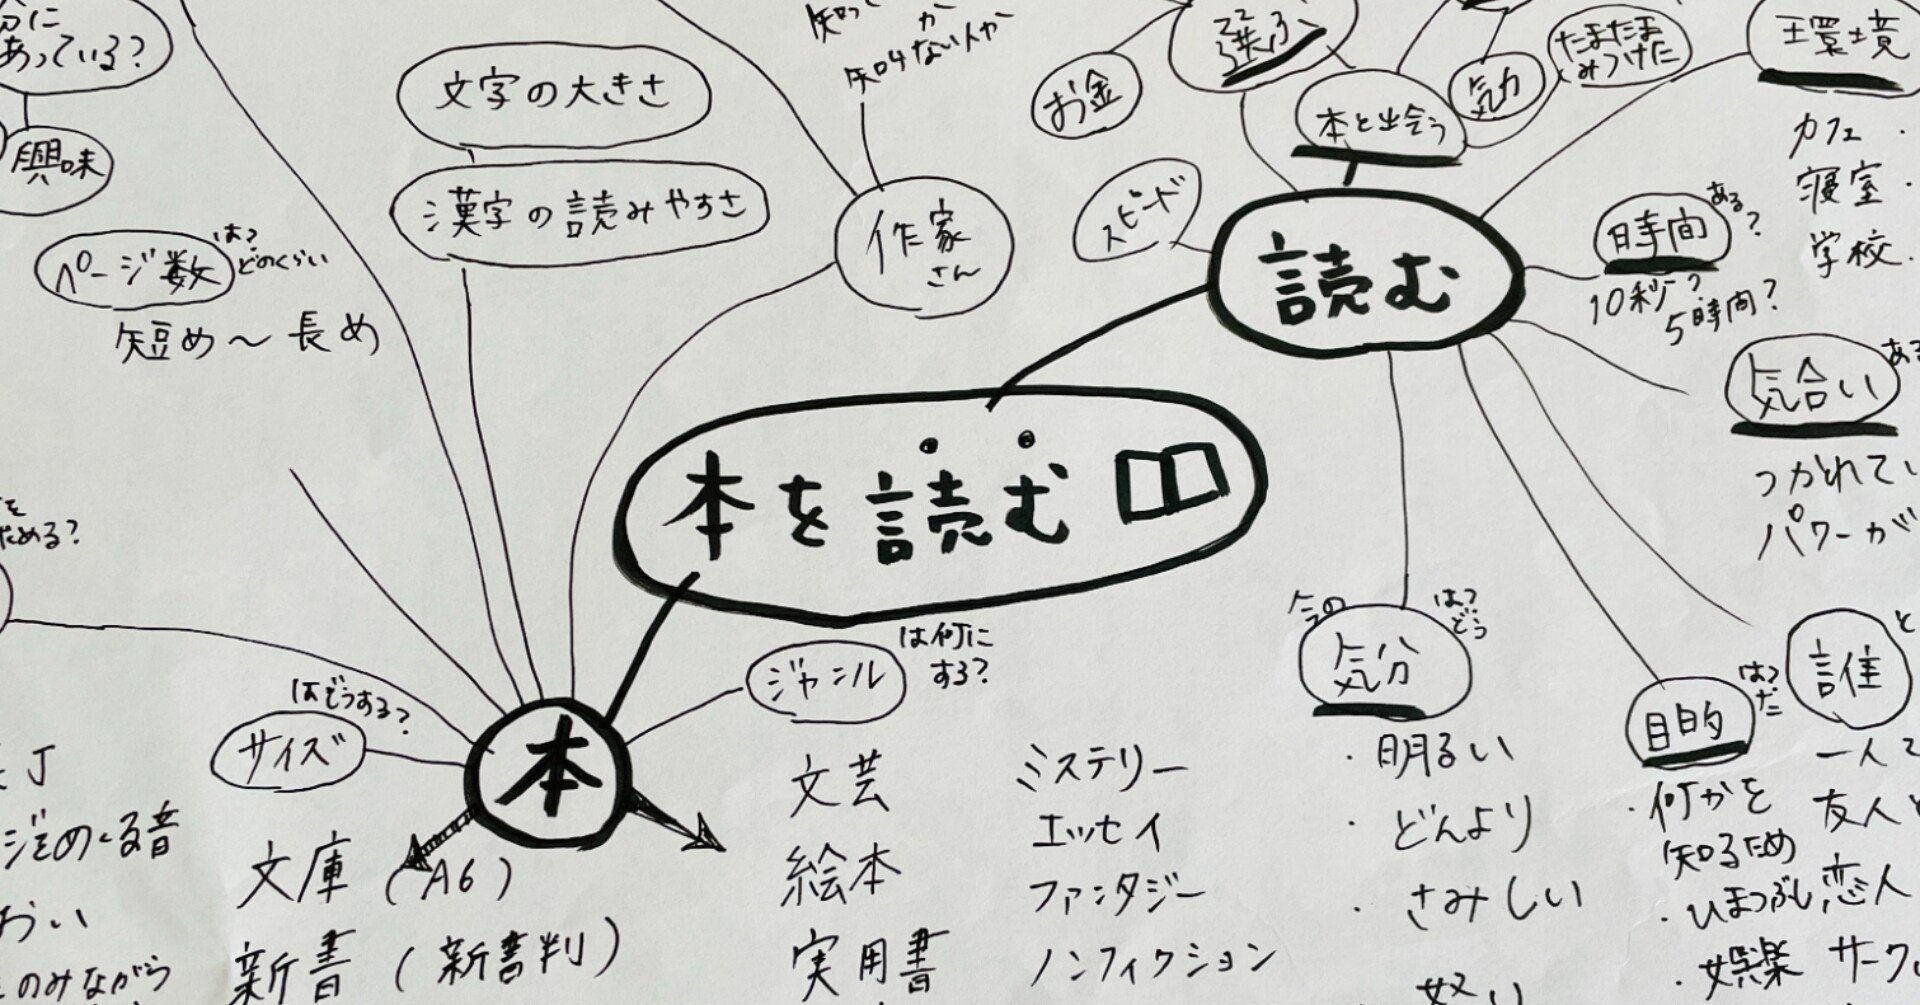 あっている?
興味
ページ数
は?
どのくらい
短め〜長め
文字の大きさ
漢字の読みやすさ
か
知らない人か
作家
さん
お金
選ぶ
本と出会う
気力
たまたま
みつけた
環境
カフェ
寝室
学校
スピード
読む
時間
ある?
10秒?
5時間?
気合い
ある
つかれてい
パワーが
本を読む
本
サイズ
はどうする?
文庫(A6)
新書(新書判)
ジャンル
は何に
する?
文芸
絵本
実用書
ミステリー
エッセイ
ファンタジー
ノンフィクション
今の
気分
は?
どう
・明るい
・どんより
・さみしい
目的
は?
・何かを
知るため
・ひまつぶし
・娯楽
誰
と
一人で
友人と
恋人
サーク
ためる?
めくる音
のみながら